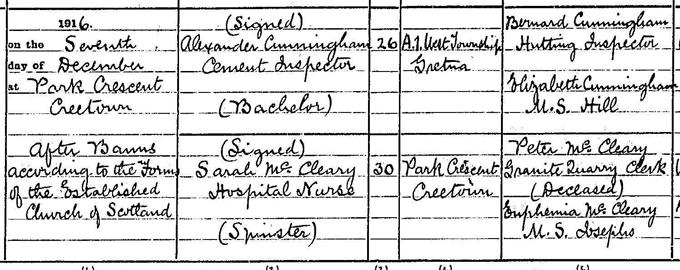 1916.
on the Seventh
day of December
at Park Crescent
Creetown
After Banns
according to the Forms
of the Established
Church of Scotland
(Signed)
Alexander Cunningham
Cement Inspector
(Bachelor)
(Signed)
Sarah Mc Cleary
Hospital Nurse
(Spinster)
26
30
A.1. West Township
Gretna
Park Crescent
Creetown
Bernard Cunningham
Hutting Inspector
Elizabeth Cunningham
M.S. Hill
Peter Mc Cleary
Granite Quarry Clerk
(Deceased)
Euphemia Mc Cleary
M.S. Josephs